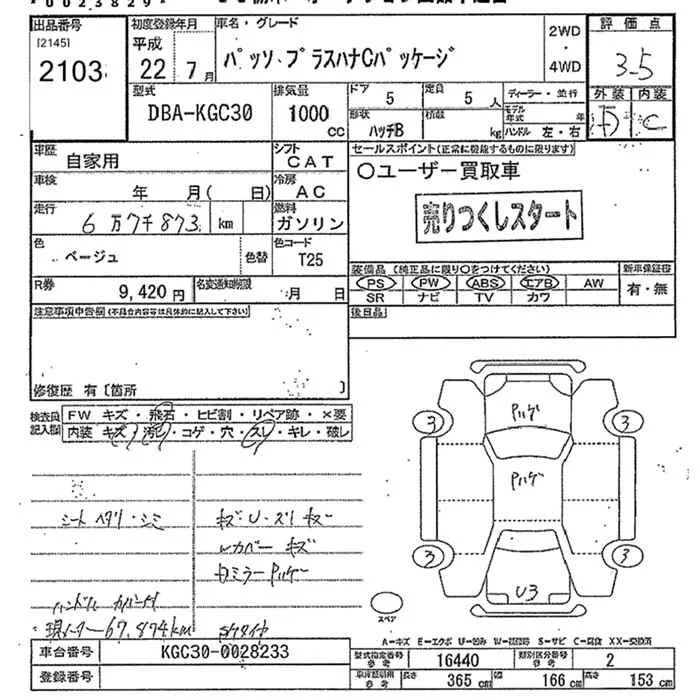 出品番号
[2145]
2103
初度登録年月
平成
22 7月
車名・グレード
パッソ プラスハナCパッケージ
2WD
・
4WD
評価点
3.5
外装 内装
D C
型式
DBA-KGC30
排気量
1000
CC
ドア
5
定員
5 人
形状
ハッチB
積載
kg
ディーラー・並行
モデル年式 年
ハンドル 左・右
車歴
自家用
シフト
CAT
車検
年 月( 日)
冷房
AC
走行
6万7千873 km
燃料
ガソリン
色
ベージュ
色替
色コード
T25
R券
9,420円
名変通知期限
月 日
セールスポイント(正常に機能するものに限ります)
○ユーザー買取車
売りつくしスタート
装備品 (純正品に限り○をつけてください)
新車保証書
PS PW ABS エアB AW
有・無
SR ナビ TV カワ
後日品
注意事項申告欄(不具合内容等は具体的に記入して下さい)
修復歴 有 [箇所 ]
検査員記入欄
FW キズ・飛石・ヒビ割・リペア跡・×要
内装 キズ・汚れ・コゲ・穴・スレ・キレ・破レ
シート ヘタリ・シミ
キズ・U・スリキズ
カバー キズ
ミラー Pハゲ
ハンドル
現メーター67,874km
Pハゲ
Pハゲ
U3
3
3
3
3
スペア
A=キズ E=エクボ U=凹み S=サビ C=腐食 XX=交換済
車台番号
KGC30-0028233
登録番号
型式指定番号
参考
16440
類別区分番号
参考
2
車庫証明用
参考
長さ 365 cm
幅 166 cm
高さ 153 cm